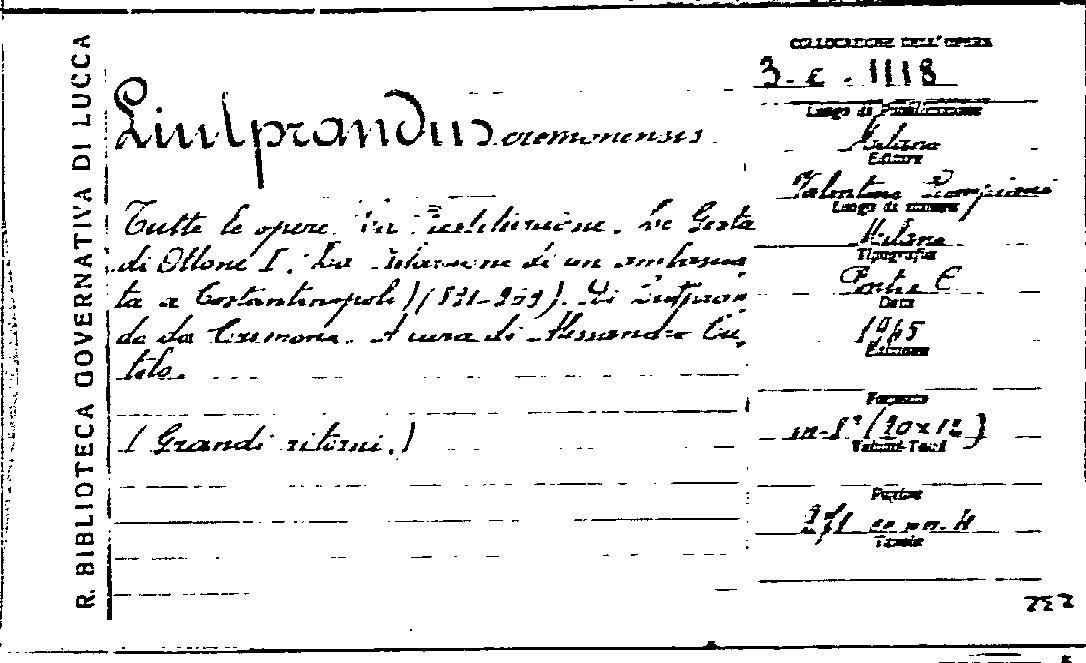 R. BIBLIOTECA GOVERNATIVA DI LUCCA
Liutprandus cremonensis
Tutte le opere. La Restituzione. Le Gesta
di Ottone I. La Relazione di un ambascia
ta a Costantinopoli) (921-969). Di Liutpran
do da Cremona. A cura di Alessandro Cu
tolo.
(Grandi ritorni.)
COLLOCAZIONE DELL'OPERA
3. c. 1118
Luogo di Pubblicazione
Milano
Editore
Valentino Bompiani
Luogo di stampa
Milano
Tipografia
Ponti e C
Data
1945
Edizione
Formato
in-8° (20x12)
Volumi-Tomi
Pagine
271 nn.
Tavole